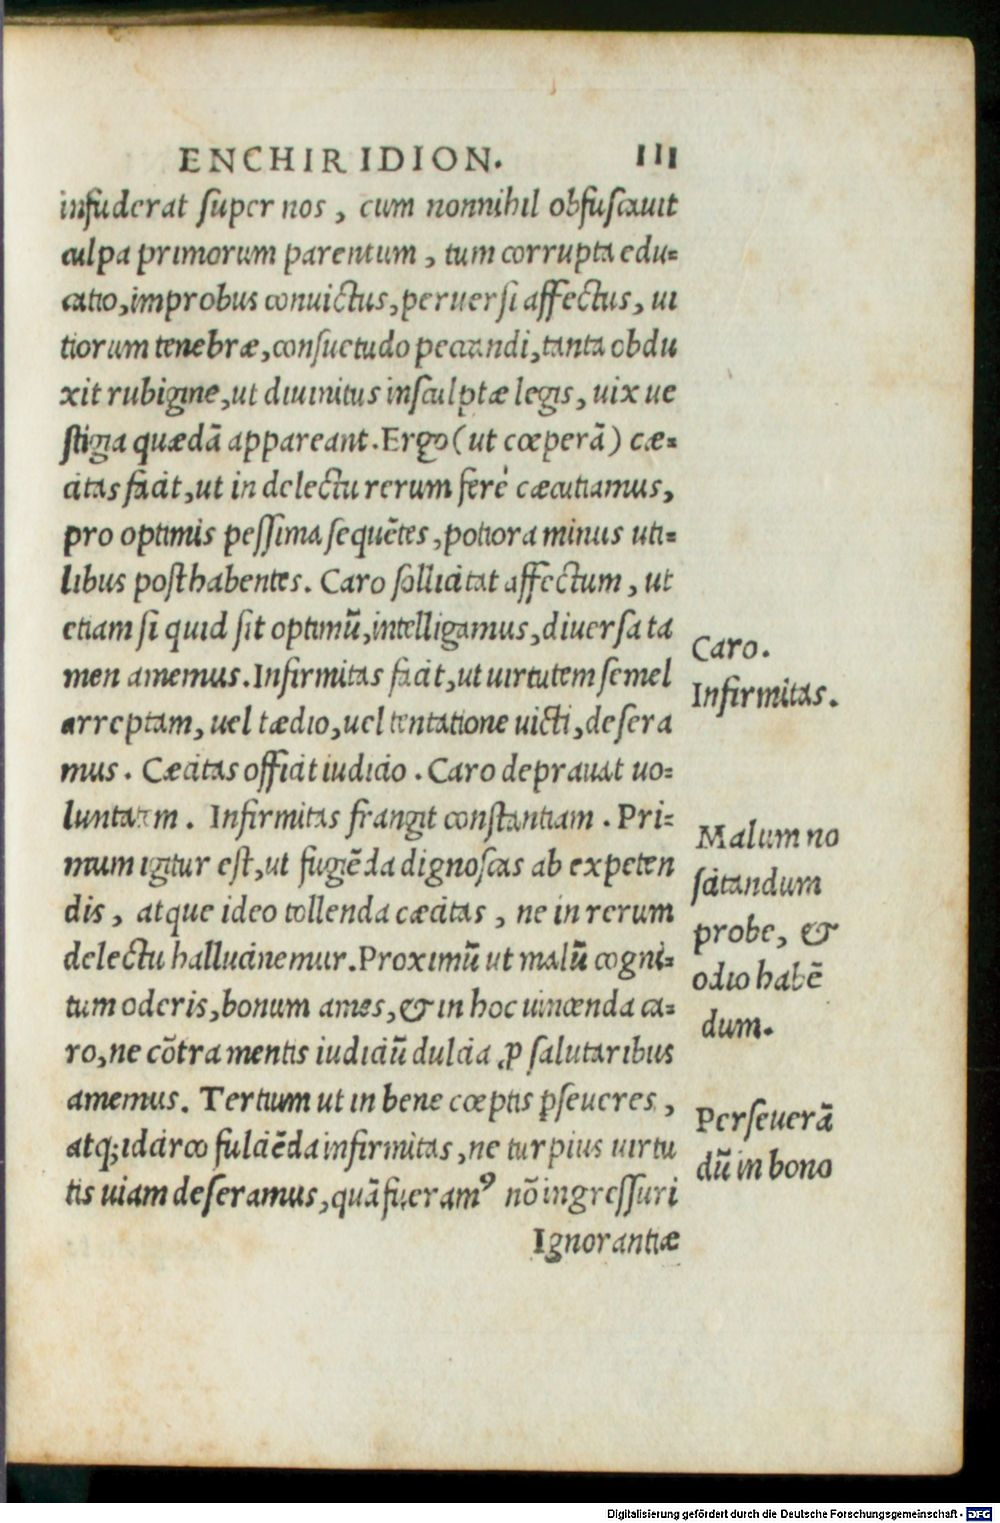 ENCHIRIDION. III
infuderat super nos, cum nonnihil obfuscauit
culpa primorum parentum, tum corrupta edu=
catio, improbus conuictus, peruersi affectus, ui
tiorum tenebræ, consuetudo peccandi, tanta obdu
xit rubigine, ut diuinitus insculptæ legis, uix ue
stigia quædã appareant. Ergo (ut cœperã) cæ=
citas facit, ut in delectu rerum ferè cæcutiamus,
pro optimis pessima sequẽtes, potiora minus uti=
libus posthabentes. Caro sollicitat affectum, ut
etiam si quid sit optimũ, intelligamus, diuersa ta
men amemus. Infirmitas facit, ut uirtutem semel
arreptam, uel tædio, uel tentatione uicti, desera
mus. Cæcitas officit iudicio. Caro deprauat uo=
luntatem. Infirmitas frangit constantiam. Pri=
mum igitur est, ut fugiẽda dignoscas ab expeten
dis, atque ideo tollenda cæcitas, ne in rerum
delectu hallucinemur. Proximũ ut malũ cogni=
tum oderis, bonum ames, & in hoc uincenda ca=
ro, ne cõtra mentis iudiciũ dulcia ꝓ salutaribus
amemus. Tertium ut in bene cœptis ꝑseueres,
atq; idcirco fulciẽda infirmitas, ne turpius uirtu
tis uiam deseramus, quã fueramꝰ nõ ingressuri
Ignorantiæ
Caro.
Infirmitas.
Malum no
scitandum
probe, &
odio habẽ
dum.
Perseuerã
dũ in bono
Digitalisierung gefördert durch die Deutsche Forschungsgemeinschaft - DFG